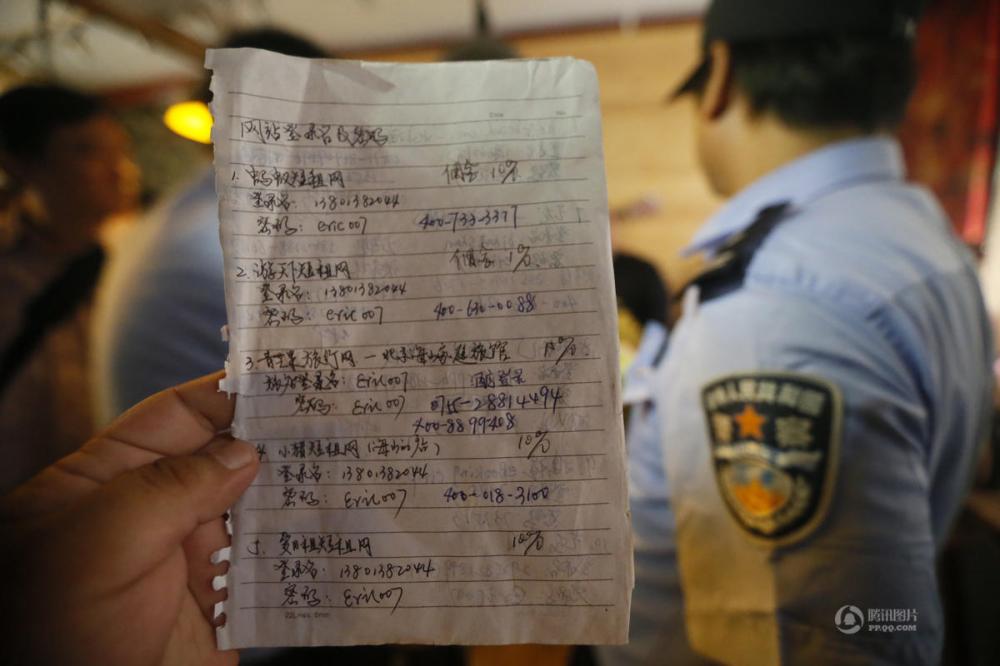 网站登录名及密码
1. 蚂蚁短租网 佣金 10%
登录名: 13801382044
密码: eric007 400-733-3377
2. 游天下短租网 佣金 10%
登录名: 13801382044
密码: eric007 400-630-0088
3. 青芒果旅行网 — 北京 旅馆 10%
登录名: Eric007
密码: Eric007 0755-28814494
400-8899-408
4. 小猪短租网 10%
登录名: 13801382044
密码: Eric007 400-018-3100
5. 爱日租短租网 10%
登录名: 13801382044
密码: Eric007
腾讯图片
PP.QQ.COM